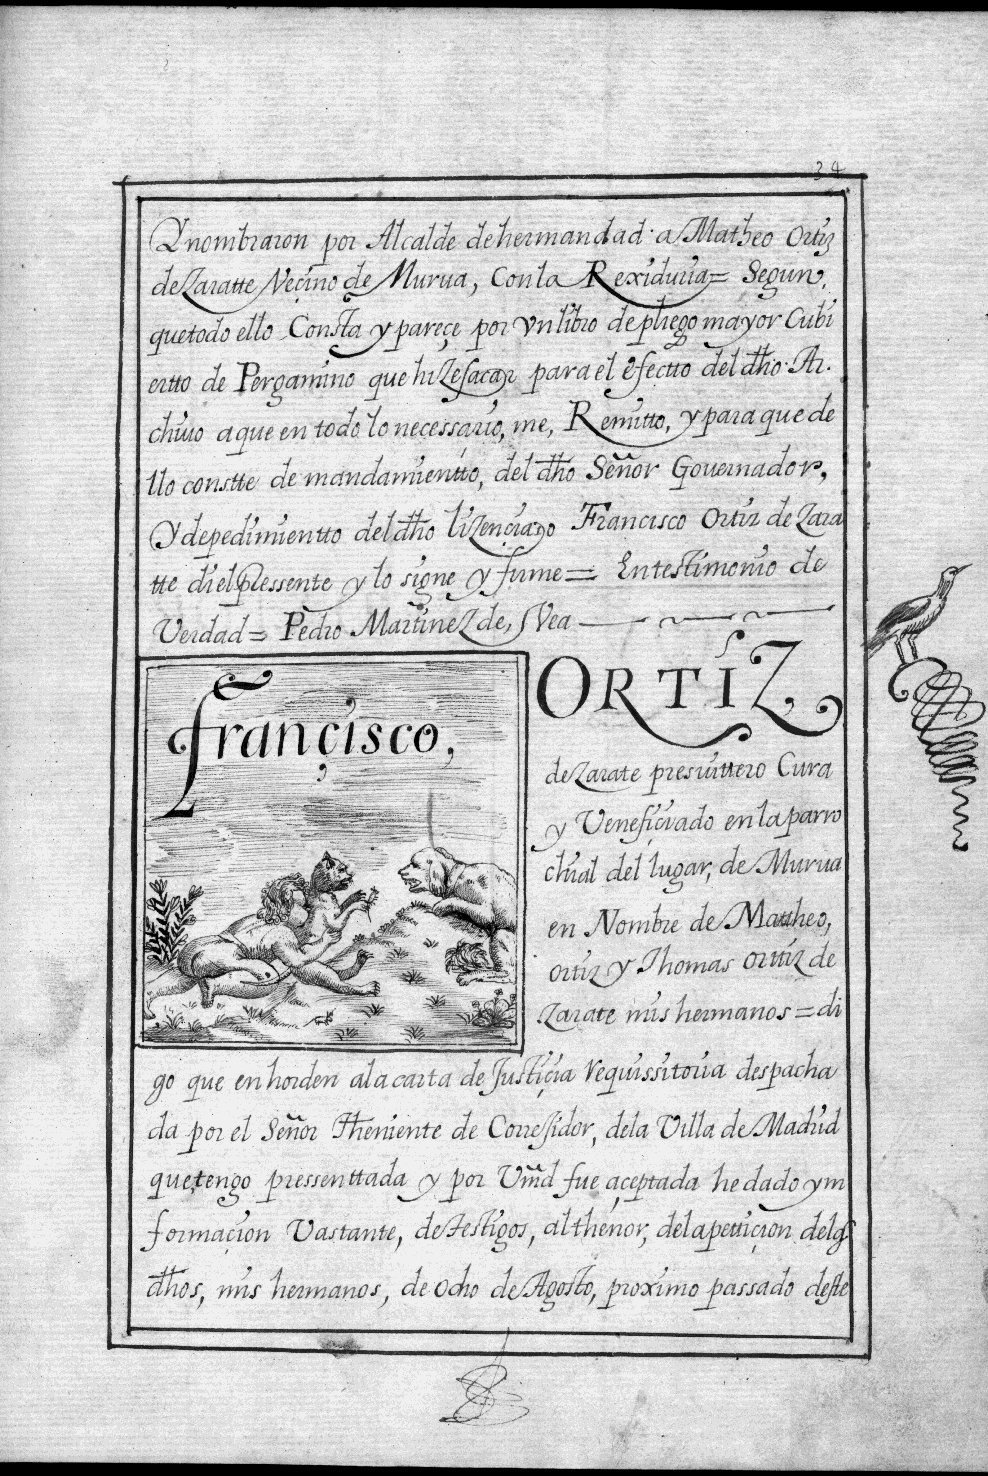 34
Y nombraron por Alcalde de hermandad a Matheo Ortiz
de Zaratte Veçino de Murua, Con la Rexiduria = Segun,
que todo ello Consta y pareçe por vn libro de pliego mayor Cubi
ertto de Pergamino que hize sacar para el efectto del dho Ar.
chiuo a que en todo lo necessario, me, Remitto, y para que de
llo constte de mandamientto, del dho Señor Gouernador,
Y de pedimientto del dho lizençiado Francisco Ortiz de Zara
tte di el pressente y lo signe y firme = En testimonio de
Verdad = Pedro Martinez de,
françisco,
ORTIZ
de Zarate presuittero Cura
y Venefiçiado en la parro
chial del lugar, de Murua
en Nombre de Mattheo,
ortiz y Thomas ortiz de
Zarate mis hermanos = di
go que en horden a la carta de Justiçia requissitoria despacha
da por el Señor Theniente de Corregidor, de la Villa de Madrid
que tengo pressenttada y por Vmd fue açeptada he dado yn
formaçion Vastante, de testigos, al thenor, de la petiçion de los
dhos, mis hermanos, de ocho de Agosto, proximo passado deste